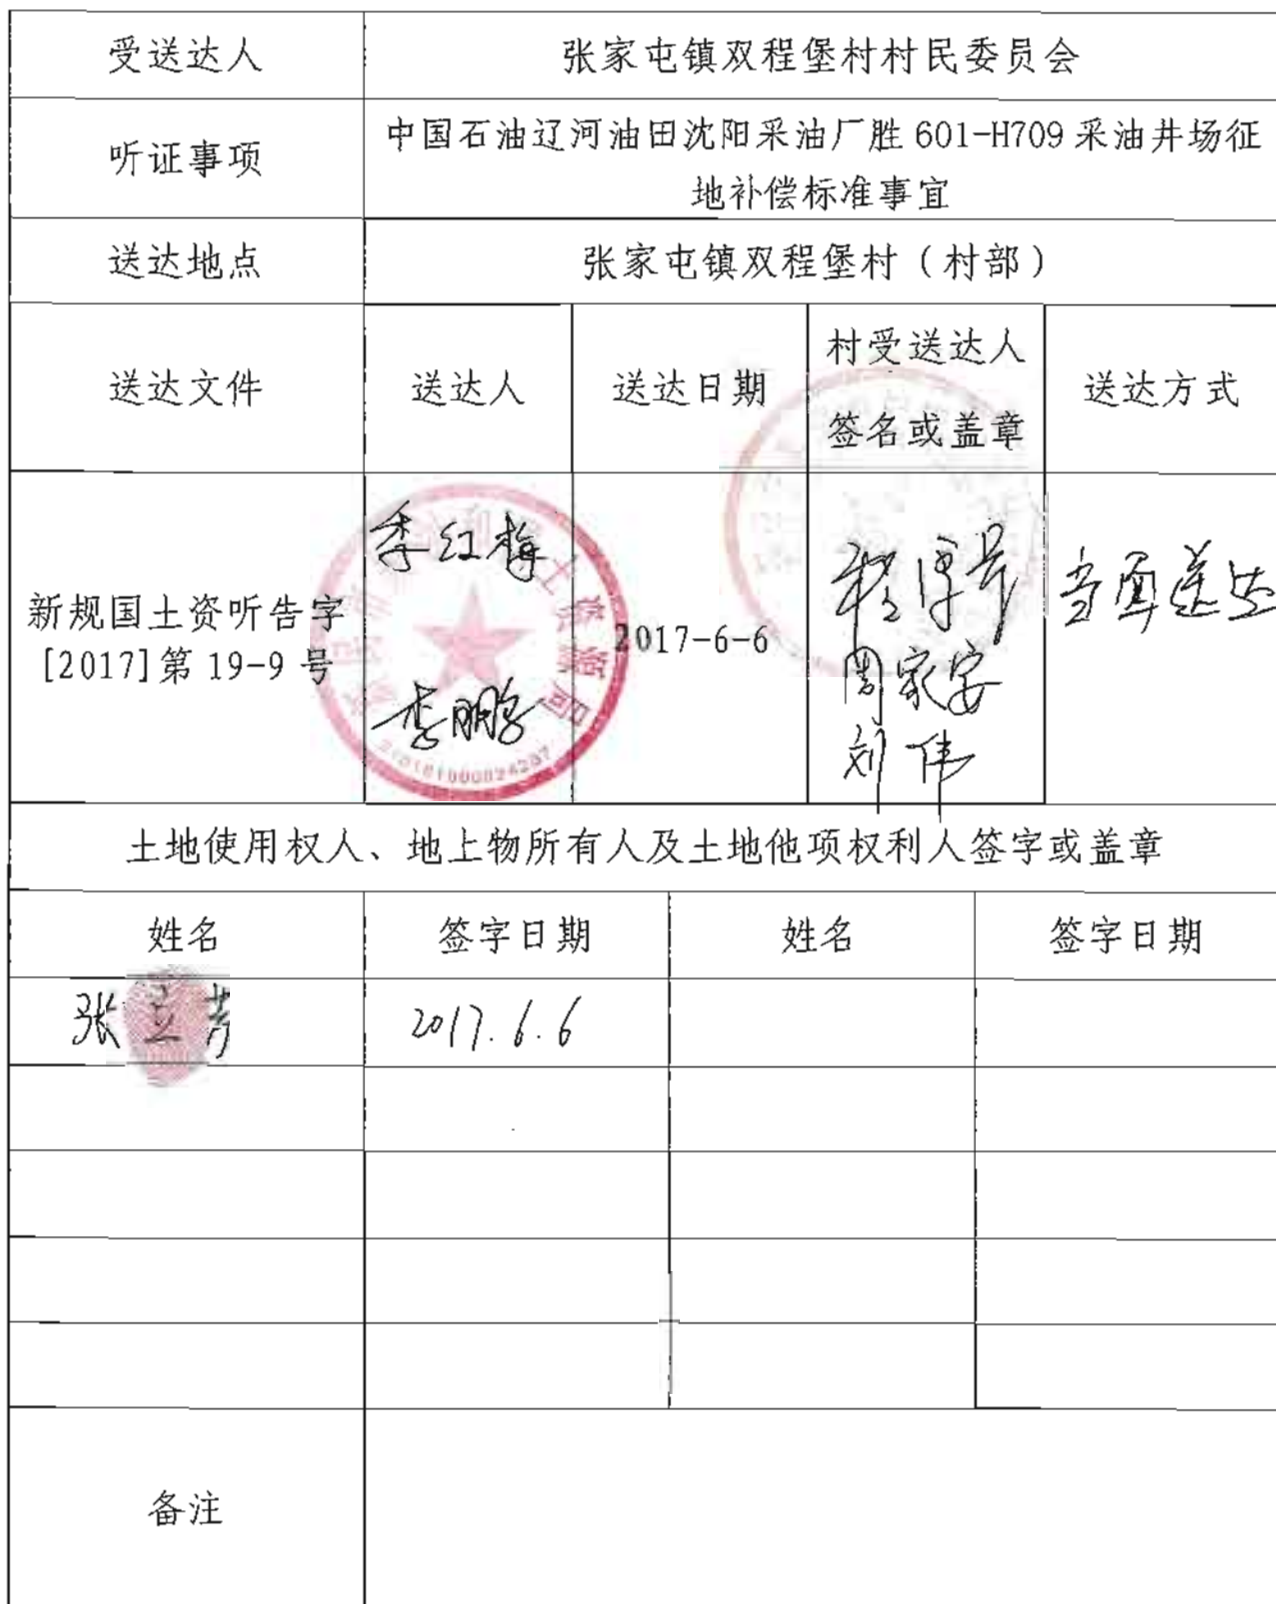 受送达人
张家屯镇双程堡村村民委员会
听证事项
中国石油辽河油田沈阳采油厂胜 601-H709 采油井场征
地补偿标准事宜
送达地点
张家屯镇双程堡村（村部）
送达文件
送达人
送达日期
村受送达人
签名或盖章
送达方式
新规国土资听告字
[2017]第 19-9 号
季红梅
李鹏
2017-6-6
周家安
刘伟
当面送达
土地使用权人、地上物所有人及土地他项权利人签字或盖章
姓名
签字日期
姓名
签字日期
张立芳
2017.6.6
备注